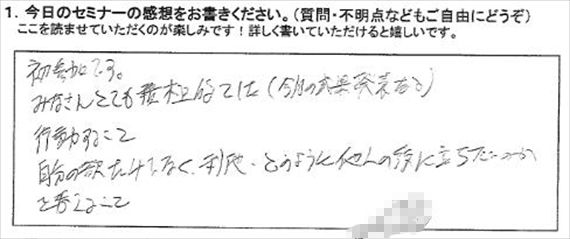 1. 今日のセミナーの感想をお書きください。（質問・不明点などもご自由にどうぞ）
ここを読ませていただくのが楽しみです！詳しく書いていただけると嬉しいです。
初参加です。
みなさんとても積極的でした（今月の成果発表など）
行動すること
自分の欲だけでなく、利他・どのように他人の役に立ちたいのか
を考えること